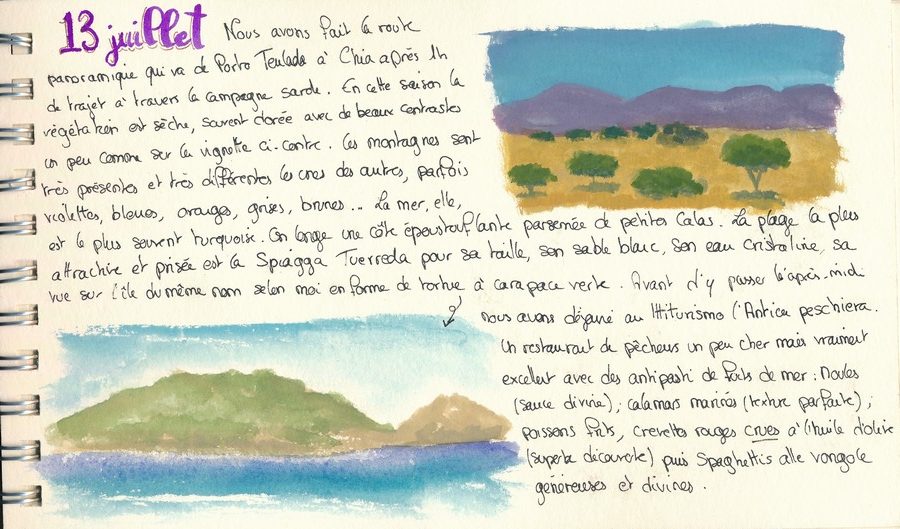 13 juillet Nous avons fait la route
panoramique qui va de Porto Teulada à Chia après 1h
de trajet à travers la campagne sarde. En cette saison la
végétation est sèche, souvent dorée avec de beaux contrastes
un peu comme sur la vignette ci-contre. Les montagnes sont
très présentes et très différentes les unes des autres, parfois
violettes, bleues, oranges, grises, brunes... La mer, elle,
est le plus souvent turquoise. On longe une côte époustouflante parsemée de petites Calas. La plage la plus
attractive et prisée est la Spiagga Tuerreda pour sa taille, son sable blanc, son eau cristaline, sa
vue sur l'île du même nom selon moi en forme de tortue à carapace verte. Avant d'y passer l'après-midi
nous avons déjeuné au Ittiturismo l'Antica peschiera.
Un restaurant de pêcheurs un peu cher mais vraiment
excellent avec des antipasti de fruits de mer : Moules
(sauce divine) ; calamars marinés (texture parfaite) ;
poissons frits, crevettes rouges crues à l'huile d'olive
(superbe découverte) puis Spaghettis alle vongole
généreuses et divines.